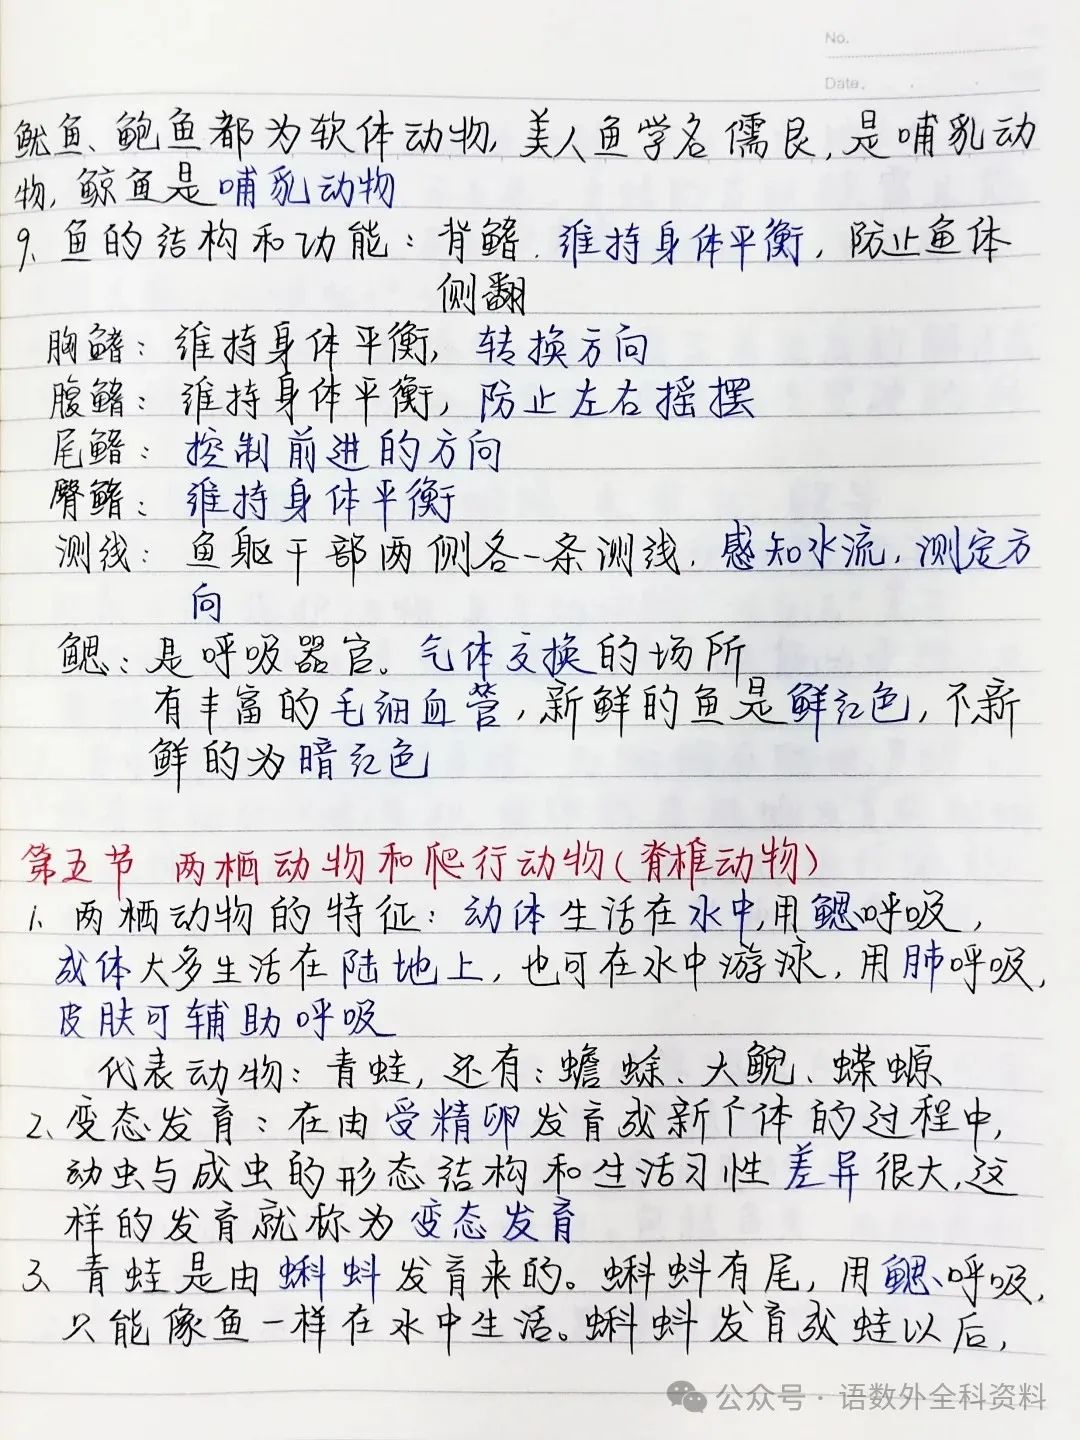 No.
Date.
鱿鱼、鲍鱼都为软体动物, 美人鱼学名儒艮, 是哺乳动
物, 鲸鱼是哺乳动物
9、鱼的结构和功能: 背鳍. 维持身体平衡, 防止鱼体
侧翻
胸鳍: 维持身体平衡, 转换方向
腹鳍: 维持身体平衡, 防止左右摇摆
尾鳍: 控制前进的方向
臀鳍: 维持身体平衡
测线: 鱼躯干部两侧各一条测线. 感知水流, 测定方
向
鳃: 是呼吸器官。气体交换的场所
有丰富的毛细血管, 新鲜的鱼是鲜红色, 不新
鲜的为暗红色
第五节 两栖动物和爬行动物(脊椎动物)
1、两栖动物的特征: 动体生活在水中,用鳃呼吸,
成体大多生活在陆地上, 也可在水中游泳, 用肺呼吸,
皮肤可辅助呼吸
代表动物: 青蛙, 还有: 蟾蜍、大鲵、蝾螈
2、变态发育: 在由受精卵发育成新个体的过程中,
动虫与成虫的形态结构和生活习性差异很大,这
样的发育就称为变态发育
3、青蛙是由蝌蚪发育来的。蝌蚪有尾, 用鳃呼吸,
只能像鱼一样在水中生活。蝌蚪发育成蛙以后,
公众号·语数外全科资料